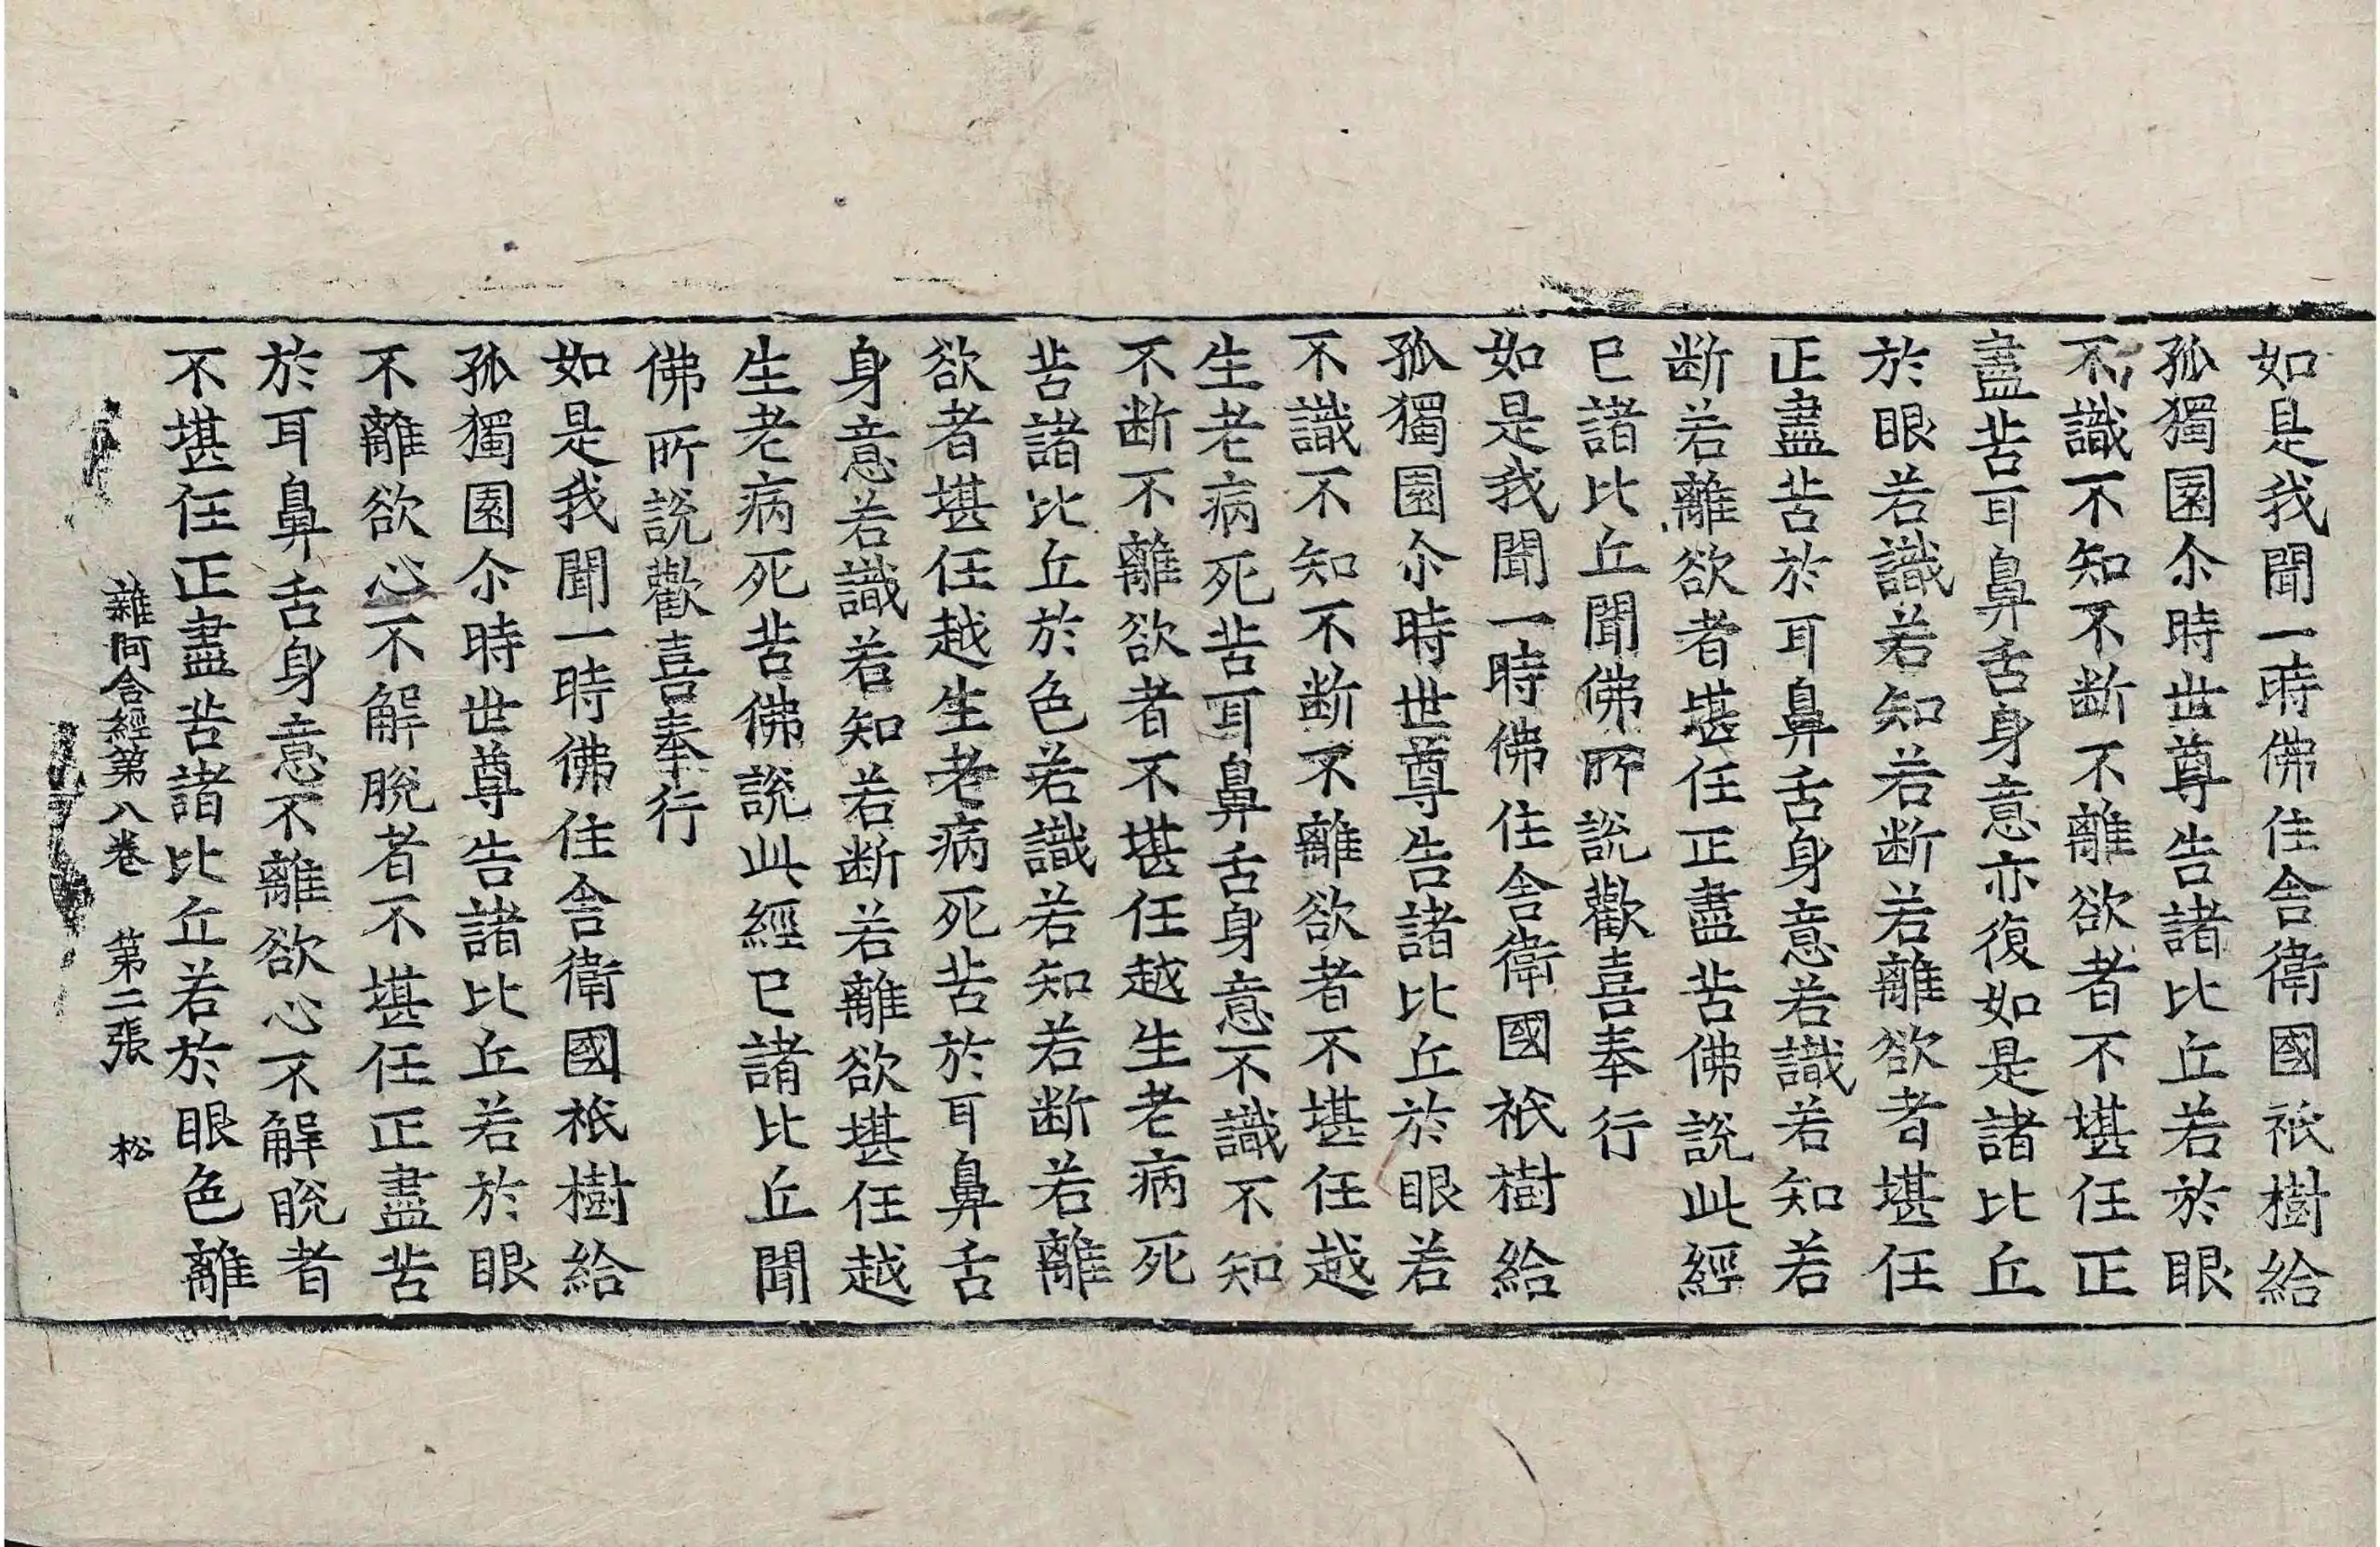 如是我聞一時佛住舎衛國祇樹給
孤獨園尒時世尊告諸比丘若於眼
不識不知不断不離欲者不堪任正
盡苦耳鼻舌身意亦復如是諸比丘
於眼若識若知若断若離欲者堪任
正盡苦於耳鼻舌身意若識若知若
断若離欲者堪任正盡苦佛說此經
已諸比丘聞佛所說歡喜奉行
如是我聞一時佛住舎衛國祇樹給
孤獨園尒時世尊告諸比丘於眼若
不識不知不断不離欲者不堪任越
生老病死苦耳鼻舌身意不識不知
不断不離欲者不堪任越生老病死
苦諸比丘於色若識若知若断若離
欲者堪任越生老病死苦於耳鼻舌
身意若識若知若断若離欲堪任越
生老病死苦佛說此經已諸比丘聞
佛所說歡喜奉行
如是我聞一時佛住舎衛國祇樹給
孤獨園尒時世尊告諸比丘若於眼
不離欲心不解脫者不堪任正盡苦
於耳鼻舌身意不離欲心不解脫者
不堪任正盡苦諸比丘若於眼色離
雜阿含經第八卷 第二張 松